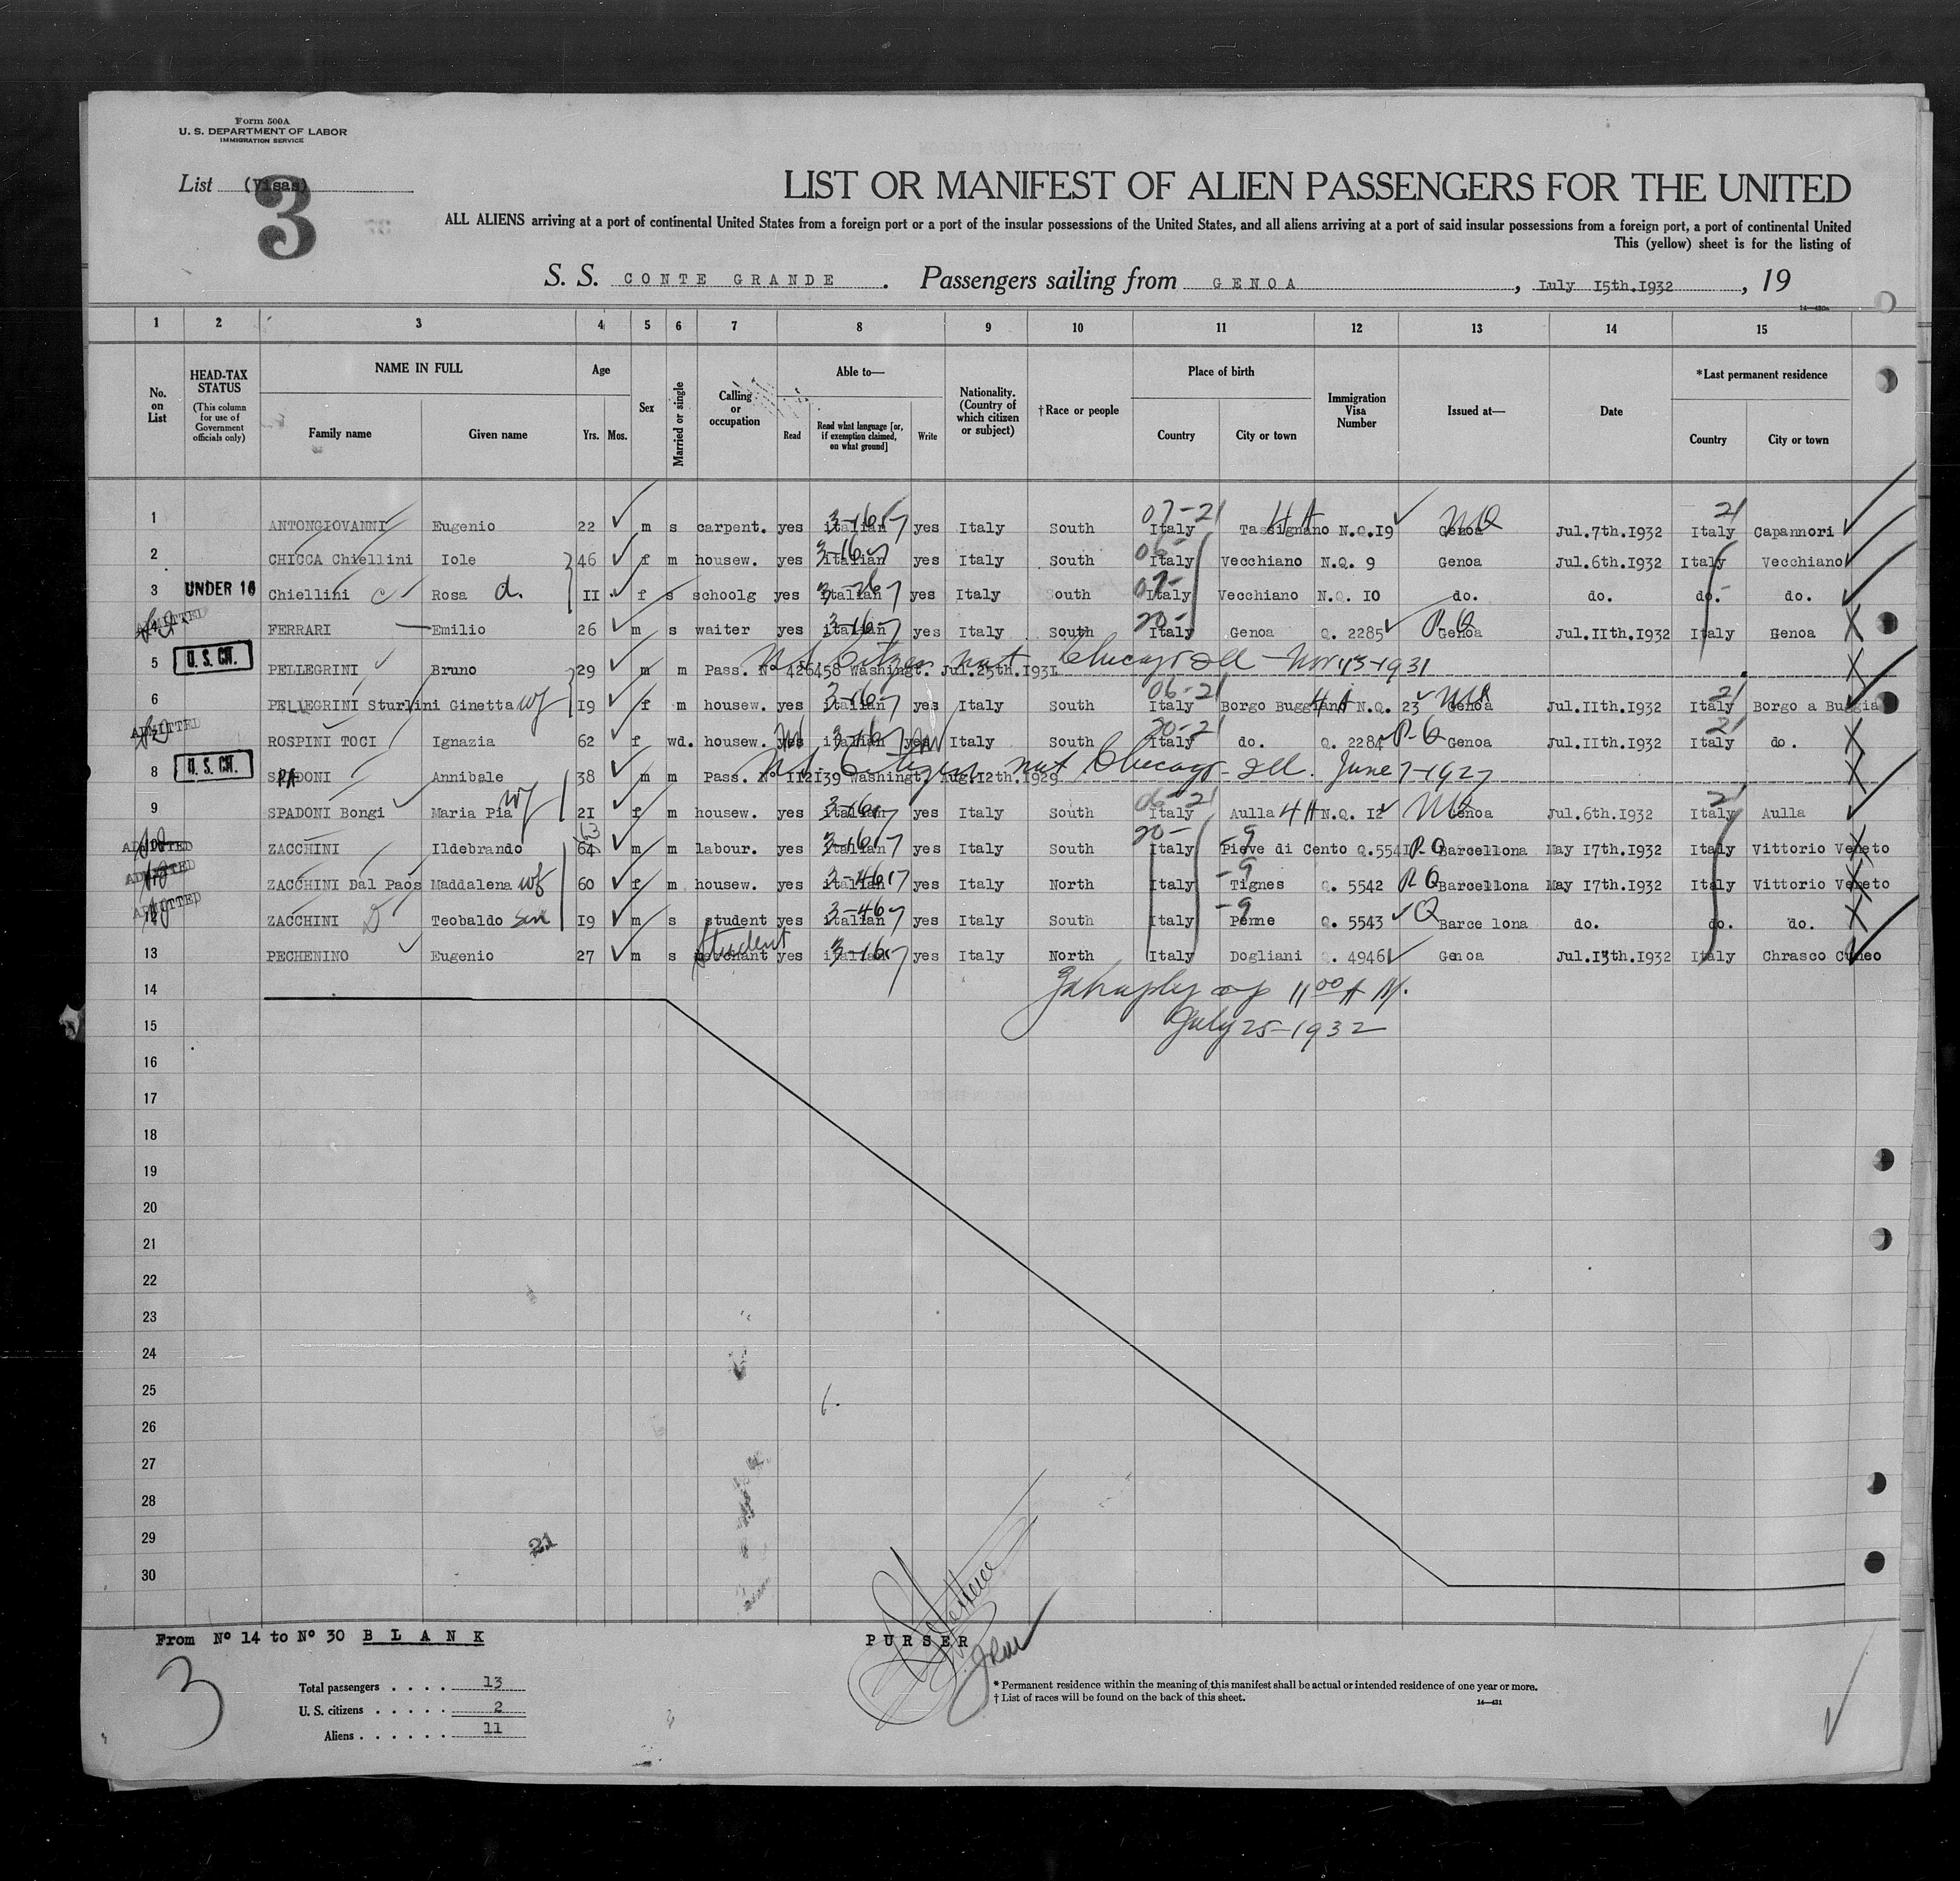 Form 500A
U. S. DEPARTMENT OF LABOR
IMMIGRATION SERVICE
List (Visas)
3
LIST OR MANIFEST OF ALIEN PASSENGERS FOR THE UNITED
ALL ALIENS arriving at a port of continental United States from a foreign port or a port of the insular possessions of the United States, and all aliens arriving at a port of said insular possessions from a foreign port, a port of continental United
This (yellow) sheet is for the listing of
S. S. CONTE GRANDE . Passengers sailing from GENOA , Iuly 15th.1932 , 19
14—430a
1 2 3 4 5 6 7 8 9 10 11 12 13 14 15
No. on List
HEAD-TAX STATUS (This column for use of Government officials only)
NAME IN FULL
Family name Given name
Age
Yrs. Mos.
Sex
Married or single
Calling or occupation
Able to—
Read Read what language [or, if exemption claimed, on what ground] Write
Nationality. (Country of which citizen or subject)
†Race or people
Place of birth
Country City or town
Immigration Visa Number
Issued at—
Date
*Last permanent residence
Country City or town
1 ANTONGIOVANNI Eugenio 22 m s carpent. yes italian yes Italy South 07-21 Italy Tassignano N.Q.19 Genoa Jul.7th.1932 21 Italy Capannori
2 CHICCA Chiellini Iole 46 f m housew. yes italian yes Italy South 06- Italy Vecchiano N.Q. 9 Genoa Jul.6th.1932 Italy Vecchiano
3 UNDER 16 Chiellini Rosa d. 11 f s schoolg yes italian yes Italy South Italy Vecchiano N.Q. 10 do. do. do. do.
4 ADMITTED FERRARI Emilio 26 m s waiter yes italian yes Italy South 20- Italy Genoa Q. 2285 Genoa Jul.11th.1932 Italy Genoa
5 U. S. CH. PELLEGRINI Bruno 29 m m Pass. Nº 426458 Washingt. Jul.25th.1931 Chicago Ill - Nov 13-1931
6 PELLEGRINI Sturlini Ginetta wf 19 f m housew. yes italian yes Italy South 06-21 Italy Borgo Buggiano N.Q. 23 Genoa Jul.11th.1932 21 Italy Borgo a Buggia
ADMITTED ROSPINI TOCI Ignazia 62 f wd. housew. yes italian yes Italy South 20-21 Italy do. Q. 2284 P-Q Genoa Jul.11th.1932 21 Italy do.
8 U. S. CH. SPADONI Annibale 38 m m Pass. Nº 112139 Washingt. Aug.12th.1929 Citizen nat Chicago - Ill. June 7-1927
9 SPADONI Bongi Maria Pia wf 21 f m housew. yes italian yes Italy South 06-21 Italy Aulla N.Q. 12 Genoa Jul.6th.1932 21 Italy Aulla
ADMITTED ZACCHINI Ildebrando 64 63 m m labour. yes italian yes Italy South 20- Italy Pieve di Cento Q.5541 Barcellona May 17th.1932 Italy Vittorio Veneto
ADMITTED ZACCHINI Dal Paos Maddalena wf 60 f m housew. yes italian yes Italy North Italy Tignes Q. 5542 Barcellona May 17th.1932 Italy Vittorio Veneto
12 ADMITTED ZACCHINI Teobaldo son 19 m s student yes italian yes Italy South Italy Penne Q. 5543 Barce lona do. do. do.
13 PECHENINO Eugenio 27 m s merchant student yes italian yes Italy North Italy Dogliani Q. 4946 Genoa Jul.13th.1932 Italy Chrasco Cuneo
14
1100 A M.
15
July 25-1932
16
17
18
19
20
21
22
23
24
25
26
27
28
29
21
30
From Nº 14 to Nº 30 BLANK
PURSER
3
Total passengers . . . . 13
U. S. citizens . . . . . 2
Aliens . . . . . . 11
* Permanent residence within the meaning of this manifest shall be actual or intended residence of one year or more.
† List of races will be found on the back of this sheet.
14—431